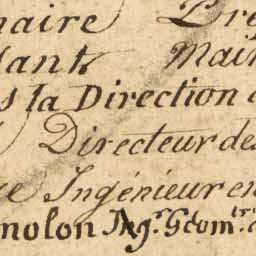 naire Pré
dant Mair
s la Direction
Directeur des
ue Ingénieur en
nolon Ing.r Géom.tr.